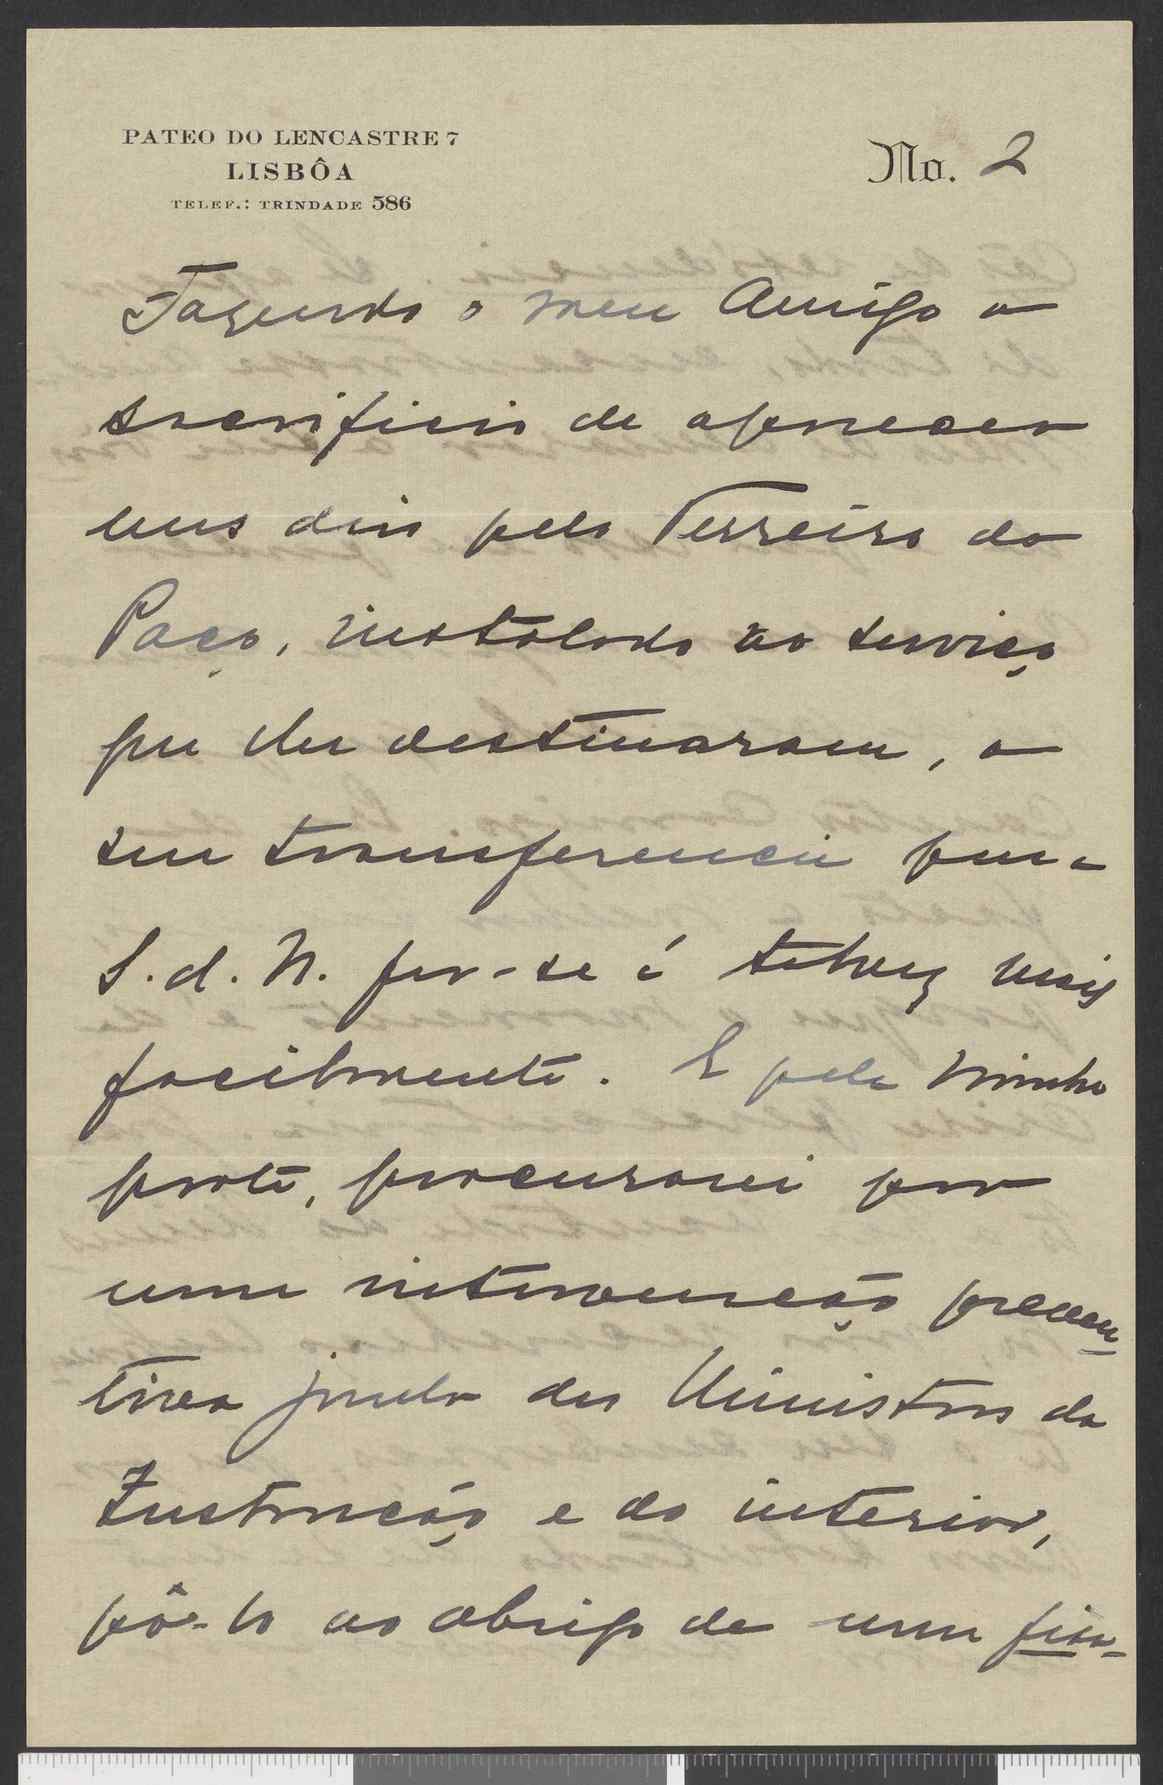 PATEO DO LENCASTRE 7
LISBÔA
TELEF.: TRINDADE 586
No. 2
Fazendo o meu Amigo o
sacrificio de aparecer
uns dias pelo Terreiro do
Paço, instalado no serviço
que lhe destinaram, a
sua transferencia para
S. d. N. far-se á talvez mais
facilmente. E pela minha
parte, procurarei por
uma intervenção preven
tiva junto dos Ministros da
Instrucção e do interior,
pô-lo ao abrigo de uma